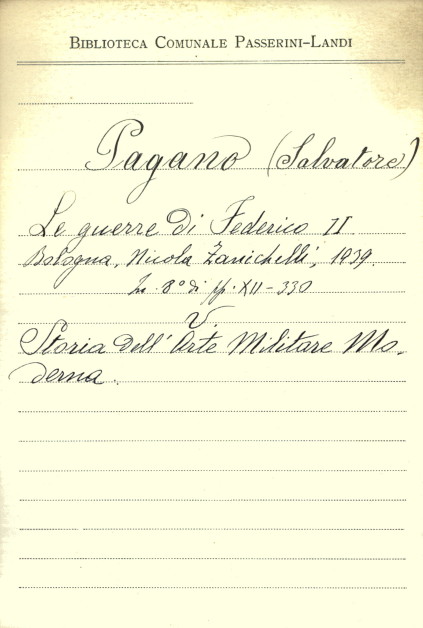 BIBLIOTECA COMUNALE PASSERINI-LANDI
Pagano (Salvatore)
Le guerre di Federico II
Bologna, Nicola Zanichelli, 1939.
In 8° di pp. XII-330
V.
Storia dell'Arte Militare Mo-
derna.